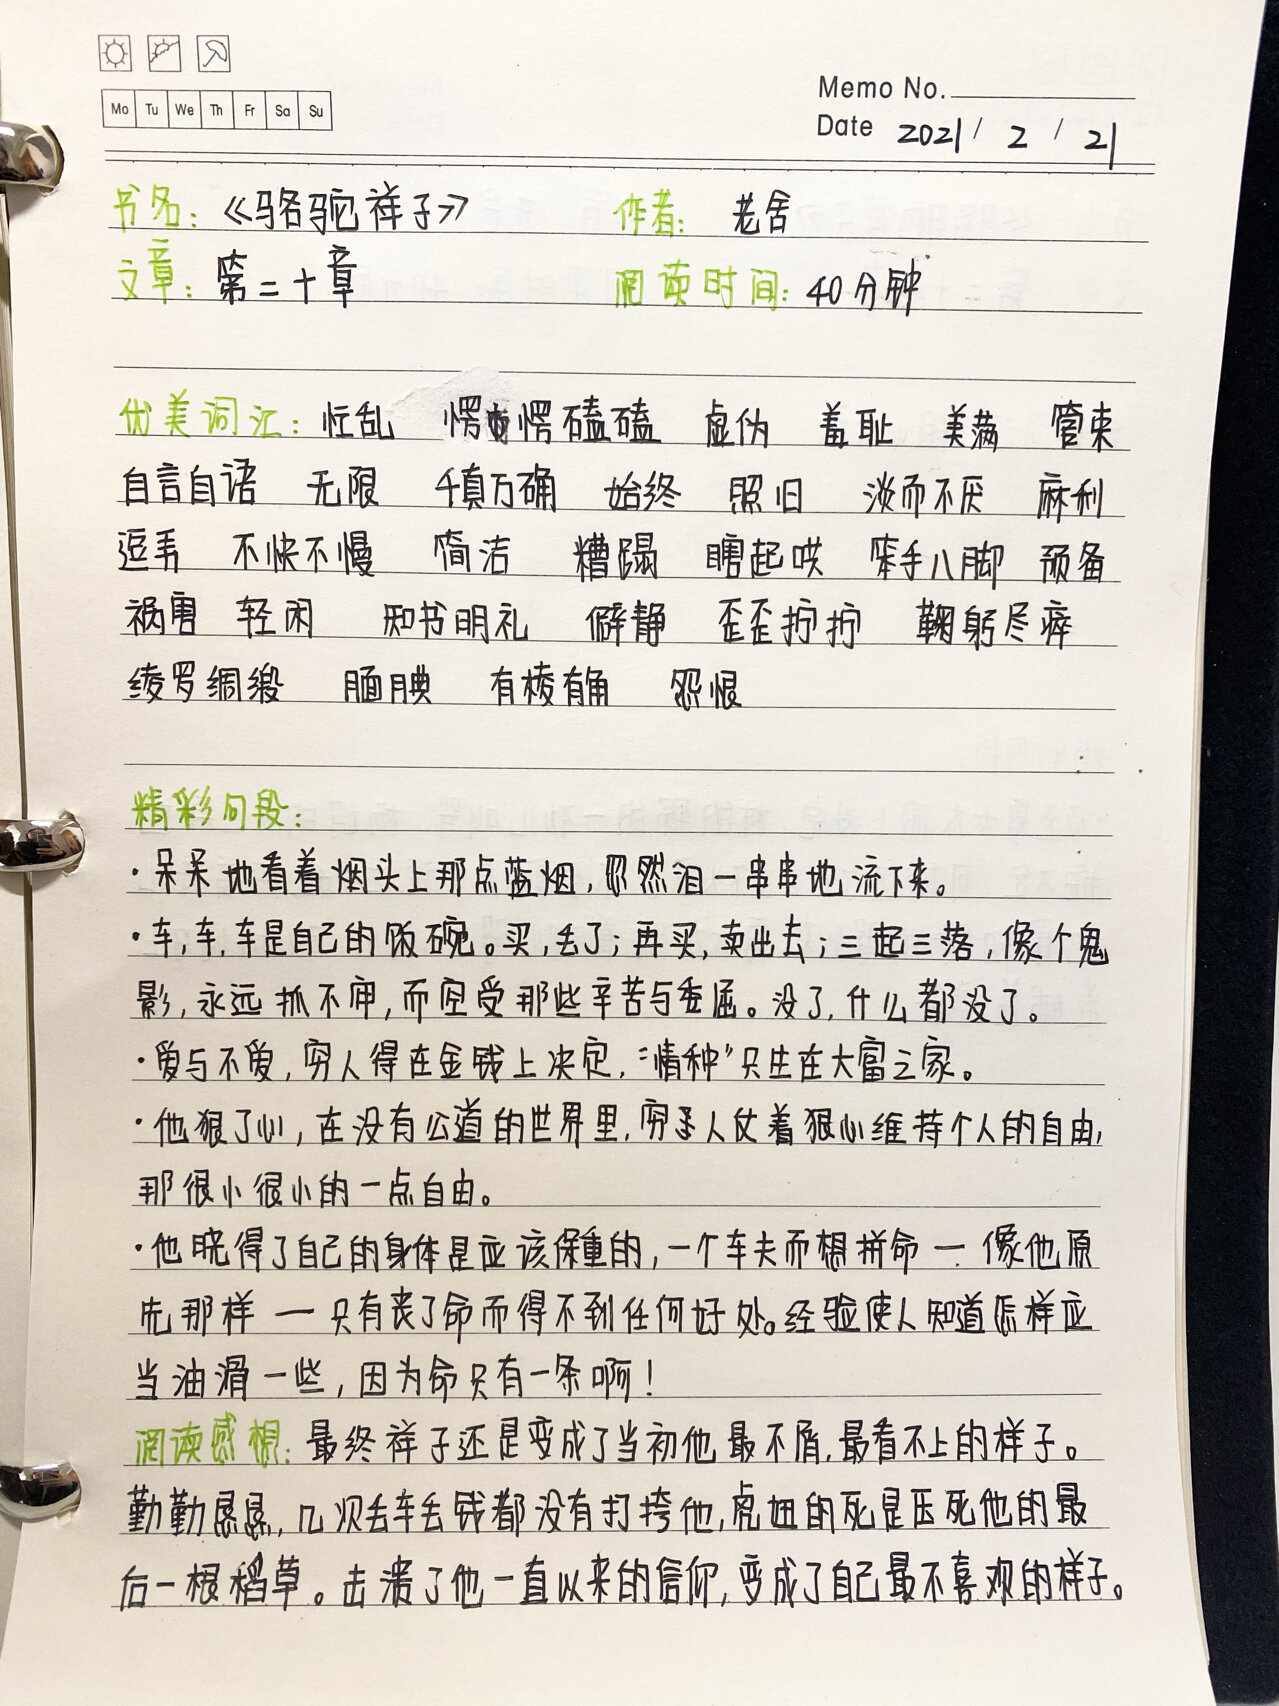 Mo Tu We Th Fr Sa Su
Memo No.
Date 2021 / 2 / 21
书名：《骆驼祥子》 作者： 老舍
文章：第二十章 阅读时间：40分钟
优美词汇：忙乱 愣愣磕磕 虚伪 羞耻 美满 管束
自言自语 无限 千真万确 始终 照旧 淡而不厌 麻利
逗弄 不快不慢 简洁 糟蹋 瞎起哄 笨手八脚 预备
祸害 轻闲 知书明礼 僻静 歪歪拧拧 鞠躬尽瘁
绫罗绸缎 腼腆 有棱有角 怨恨
精彩句段：
·呆呆地看着烟头上那点蓝烟，忽然泪一串串地流下来。
·车，车，车是自己的饭碗。买，丢了；再买，卖出去；三起三落，像个鬼
影，永远抓不牢，而空受那些辛苦与委屈。没了，什么都没了。
·爱与不爱，穷人得在金钱上决定，“情种”只生在大富之家。
·他狠了心，在没有公道的世界里，穷人仗着狠心维持个人的自由，
那很小很小的一点自由。
·他晓得了自己的身体是应该保重的，一个车夫而想拼命一像他原
先那样一只有丧了命而得不到任何好处。经验使人知道怎样应
当油滑一些，因为命只有一条啊！
阅读感想：最终祥子还是变成了当初他最不屑，最看不上的样子。
勤勤恳恳，几次丢车丢钱都没有打挎他，虎妞的死是压死他的最
后一根稻草。击溃了他一直以来的信仰，变成了自己最不喜欢的样子。